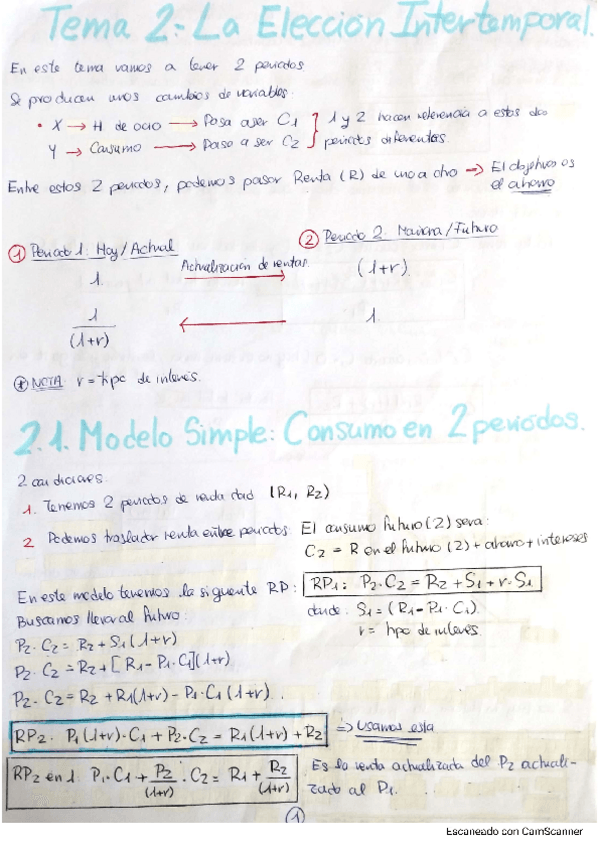 Tema 2.- La Elección Intertemporal.
En este tema vamos a tener 2 periodos
Se producen unos cambios de variables.
• X → H de ocio → Pasa a ser C1 } 1 y 2 hacen referencia a estos dos
Y → Consumo → Paso a ser C2 } periodos diferentes.
Entre estos 2 periodos, podemos pasar Renta (R) de uno a otro → El objetivo es
el ahorro
① Periodo 1: Hoy/Actual
② Periodo 2: Mañana/Futuro
Actualización de rentas.
1. → (1+r)
1/(1+r) ← 1.
⊛ NOTA: r = tipo de interés.
2.1. Modelo Simple: Consumo en 2 periodos.
2 condiciones.
1. Tenemos 2 periodos de renta dad (R1, R2)
2 Podemos trasladar renta entre periodos.
El consumo futuro (2) será:
C2 = R en el futuro (2) + ahorro + intereses
En este modelo tenemos la siguente RP:
RP1: P2·C2 = R2 + S1 + r·S1
donde: S1 = (R1 - P1·C1).
r = tipo de interés.
Buscamos llevar al futuro:
P2·C2 = R2 + S1(1+r)
P2·C2 = R2 + [R1 - P1·C1](1+r)
P2·C2 = R2 + R1(1+r) - P1·C1(1+r).
RP2: P1(1+r)·C1 + P2·C2 = R1(1+r) + R2 ⇒ Usamos esta
RP2 en 1: P1·C1 + P2/(1+r)·C2 = R1 + R2/(1+r)
Es la renta actualizada del P2 actuali-
zado al P1.
1
Escaneado con CamScanner